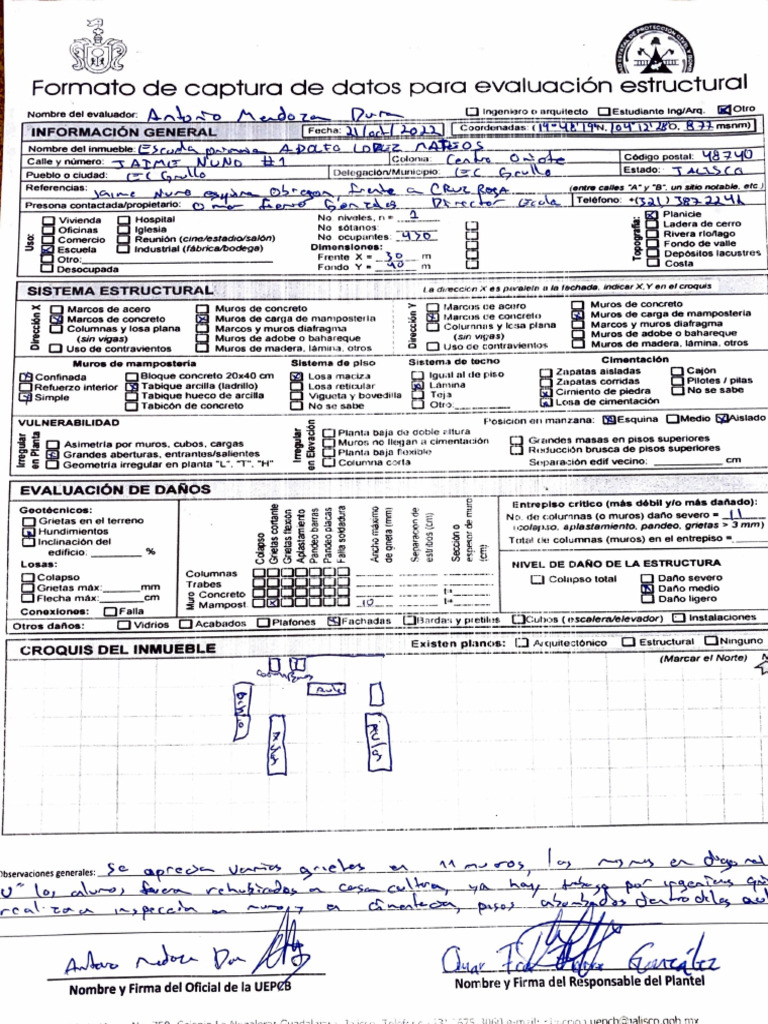 Formato de captura de datos para evaluación estructural
Nombre del evaluador: Antonio Mendoza Duran Ingeniero o arquitecto Estudiante Ing/Arq. Otro
INFORMACIÓN GENERAL Fecha: 21/oct/2022 Coordenadas:
Nombre del inmueble: Escuela primaria ADOLFO LOPEZ MATEOS
Calle y número: JAIME NUNO #1 Colonia: Centro Código postal: 48740
Pueblo o ciudad: El Grullo Delegación/Municipio: El Grullo Estado: JALISCO
Referencias: Jaime Nuno esquina Obregon, frente a CRUZ ROJA (entre calles "A" y "B", un sitio notable, etc.)
Presona contactada/propietario: Gonzalez Director Teléfono:
Uso:
Vivienda Hospital No niveles, n = 1 Planicie
Oficinas Iglesia No sótanos: Ladera de cerro
Comercio Reunión (cine/estadio/salón) No ocupantes: 430 Rivera río/lago
Escuela Industrial (fábrica/bodega) Dimensiones: Fondo de valle
Otro: Frente X = 30 m Depósitos lacustres
Desocupada Fondo Y = 40 m Costa
Topografía:
SISTEMA ESTRUCTURAL La dirección X es paralela a la fachada, indicar X,Y en el croquis
Dirección X Dirección Y
Marcos de acero Muros de concreto Marcos de acero Muros de concreto
Marcos de concreto Muros de carga de mampostería Marcos de concreto Muros de carga de mampostería
Columnas y losa plana Marcos y muros diafragma Columnas y losa plana Marcos y muros diafragma
(sin vigas) Muros de adobe o bahareque (sin vigas) Muros de adobe o bahareque
Uso de contravientos Muros de madera, lámina, otros Uso de contravientos Muros de madera, lámina, otros
Muros de mampostería Sistema de piso Sistema de techo Cimentación
Confinada Bloque concreto 20x40 cm Losa maciza Igual al de piso Zapatas aisladas Cajón
Refuerzo interior Tabique arcilla (ladrillo) Losa reticular Lámina Zapatas corridas Pilotes / pilas
Simple Tabique hueco de arcilla Vigueta y bovedilla Teja Cimiento de piedra No se sabe
Tabicón de concreto No se sabe Otro: Losa de cimentación
VULNERABILIDAD Posición en manzana: Esquina Medio Aislado
Irregular en Planta Irregular en Elevación
Asimetría por muros, cubos, cargas Planta baja de doble altura Grandes masas en pisos superiores
Grandes aberturas, entrantes/salientes Muros no llegan a cimentación Reducción brusca de pisos superiores
Geometría irregular en planta "L", "T", "H" Planta baja flexible Separación edif vecino: cm
Columna corta
EVALUACIÓN DE DAÑOS
Geotécnicos:
Grietas en el terreno
Hundimientos
Inclinación del
edificio: %
Losas:
Colapso
Grietas máx: mm
Flecha máx: cm
Conexiones: Falla
Colapso Grietas cortante Grietas flexión Aplastamiento Pandeo barras Pandeo placas Falla soldadura Ancho máximo de grieta (mm) Separación de estribos (cm) Sección o espesor de muro (cm)
Columnas
Trabes
Muro Concreto t=
Mampost 10 t=
Entrepiso crítico (más débil y/o más dañado):
No. de columnas (o muros) daño severo = 11
(colapso, aplastamiento, pandeo, grietas > 3 mm)
Total de columnas (muros) en el entrepiso =
NIVEL DE DAÑO DE LA ESTRUCTURA
Colapso total Daño severo
Daño medio
Daño ligero
Otros daños: Vidrios Acabados Plafones Fachadas Bardas y pretiles Cubos (escalera/elevador) Instalaciones
CROQUIS DEL INMUEBLE Existen planos: Arquitectónico Estructural Ninguno
(Marcar el Norte) N
Observaciones generales: Se aprecia varias grietas en 11 muros, las mismas en diagonal
los alumnos fueron casa cultura, ya hay por ingenieros
inspección en muros y en cimentación, pisos dentro de las
Antonio Mendoza Duran González
Nombre y Firma del Oficial de la UEPCB Nombre y Firma del Responsable del Plantel